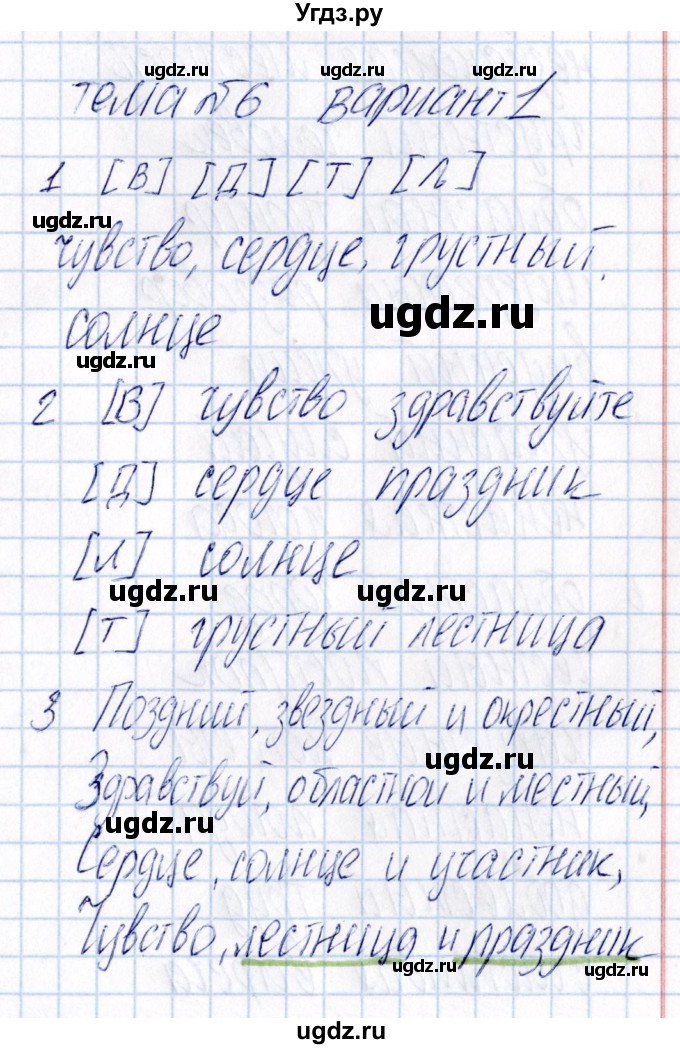 Угдз.ру
ugdz.ru ugdz.ru ugdz.ru
тема №6 вариант 1
1 [в] [д] [т] [л]
ugdz.ru
чувство, сердце, грустный,
ugdz.ru
солнце
ugdz.ru
2 [в] чувство здравствуйте
[д] сердце праздник
[л] солнце
ugdz.ru ugdz.ru
[т] грустный лестница
3 Поздний, звездный и окрестный,
ugdz.ru
Здравствуй, областной и местный,
ugdz.ru
Сердце, солнце и участник,
Чувство, лестница и праздник
ugdz.ru ugdz.ru ugdz.ru
ugdz.ru